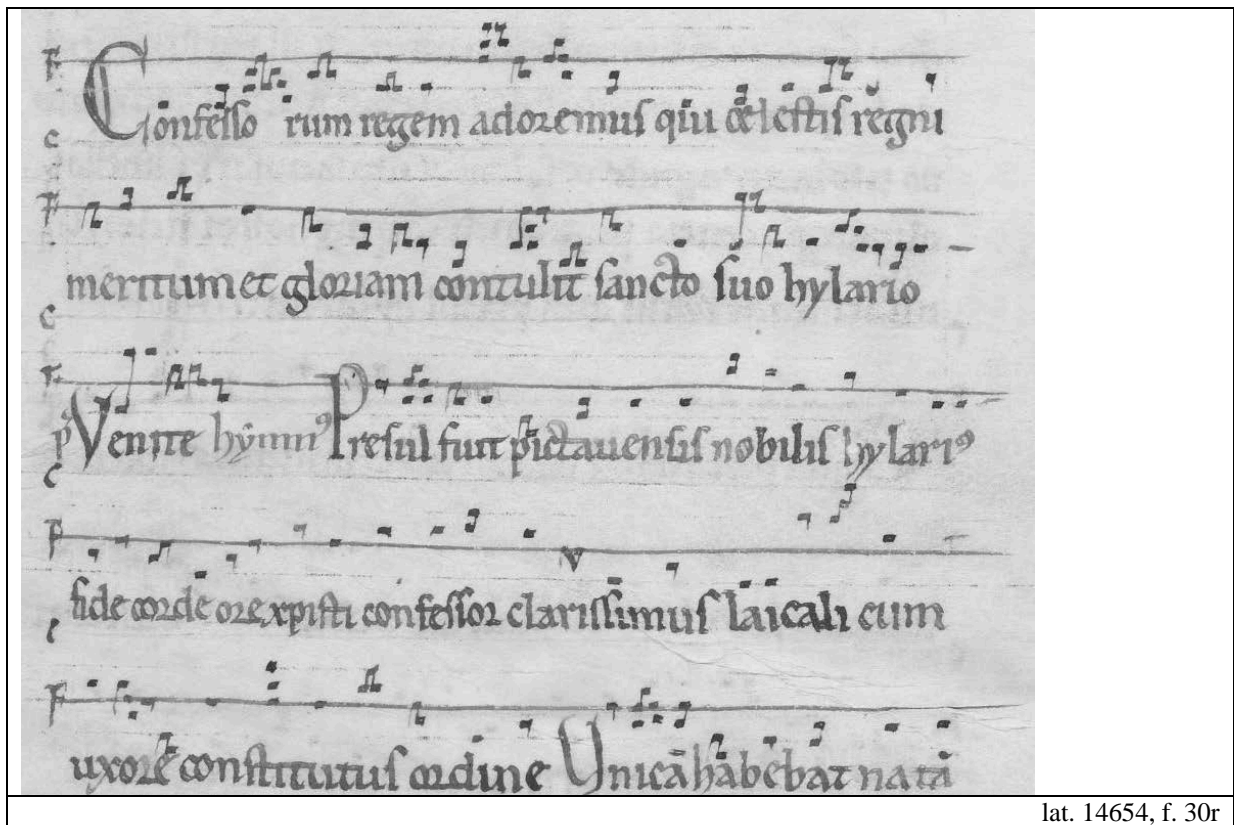 Confessorum regem adoremus qui celestis regni
meritum et gloriam contulit sancto suo hylario
ps Venite hymnꝰ Presul fuit pictauensis nobilis hylariꝰ
fide corde ore xpisti confessor clarissimus laicali cum
uxorē constitutus ordine Unicā habebat natā
lat. 14654, f. 30r